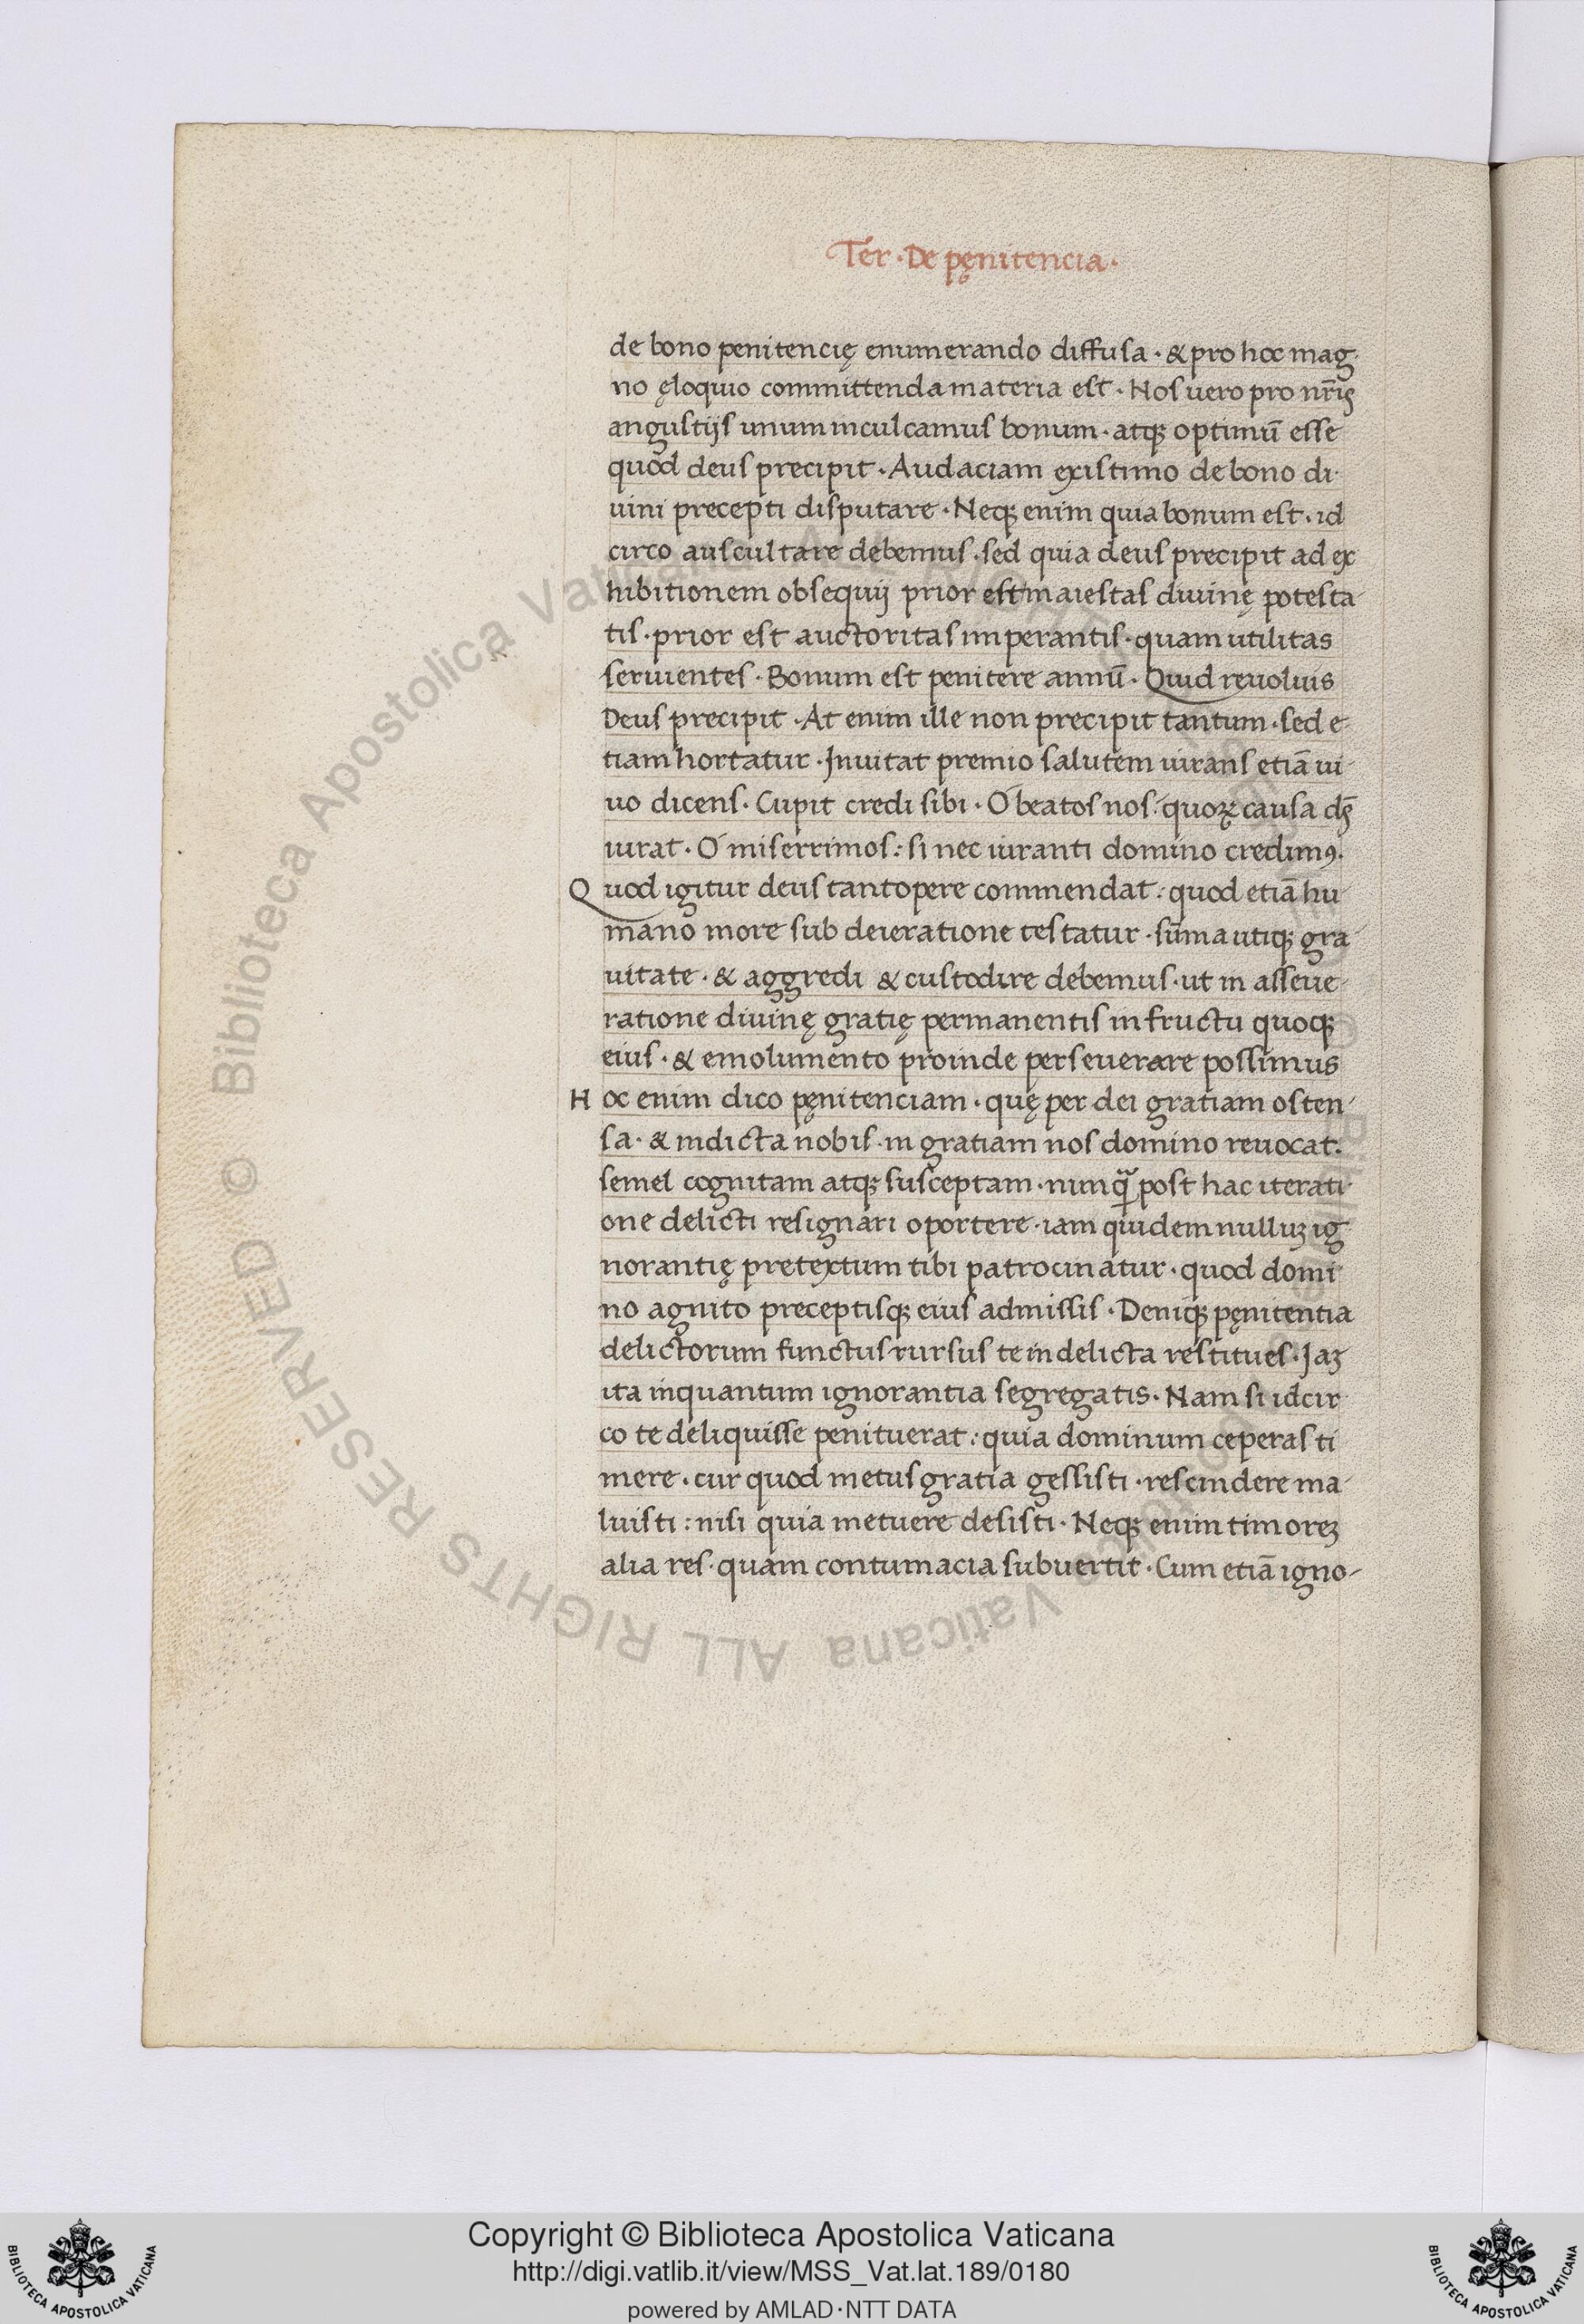 Ter · De pęnitencia ·
de bono penitencię enumerando diffusa · & pro hoc mag-
no ęloquio committenda materia est · Nos uero pro nr̄is
angustijs unum inculcamus bonum · atq; optimū esse
quod deus precipit · Audaciam existimo de bono di-
uini precepti disputare · Neq; enim quia bonum est · id
circo auscultare debemus · sed quia deus precipit ad ex
hibitionem obsequij prior est maiestas diuinę potesta-
tis · prior est auctoritas imperantis · quam utilitas
seruientes · Bonum est penitere annū · Quid reuoluis
Deus precipit · At enim ille non precipit tantum · sed e-
tiam hortatur · Inuitat premio salutem iurans etiā ui-
uo dicens · Cupit credi sibi · O beatos nos · quoꝝ causa ds̄
iurat · O miserrimos : si nec iuranti domino credimꝰ.
Quod igitur deus tantopere commendat : quod etiā hu-
mano more sub deieratione testatur · sūma utiq; gra-
uitate · & aggredi & custodire debemus · ut in asseue-
ratione diuinę gratię permanentis in fructu quoq;
eius · & emolumento proinde perseuerare possimus
Hoc enim dico pęnitenciam · quę per dei gratiam osten-
sa · & indicta nobis · in gratiam nos domino reuocat.
semel cognitam atq; susceptam · nunq̄ post hac iterati-
one delicti resignari oportere · iam quidem nulluʒ ig-
norantię pretextum tibi patrocinatur · quod domi-
no agnito preceptisq; eius admissis · Deniq; pęnitentia
delictorum functus rursus te in delicta restitues · Iaʒ
ita inquantum ignorantia segregatis · Nam si idcir-
co te deliquisse penituerat : quia dominum ceperas ti
mere · cur quod metus gratia gessisti · rescindere ma-
luisti : nisi quia metuere desisti · Neq; enim timoreʒ
alia res · quam contumacia subuertit · Cum etiā igno-
© Biblioteca Apostolica Vaticana ALL RIGHTS RESERVED
Copyright © Biblioteca Apostolica Vaticana
http://digi.vatlib.it/view/MSS_Vat.lat.189/0180
powered by AMLAD·NTT DATA
BIBLIOTECA APOSTOLICA VATICANA
BIBLIOTECA APOSTOLICA VATICANA